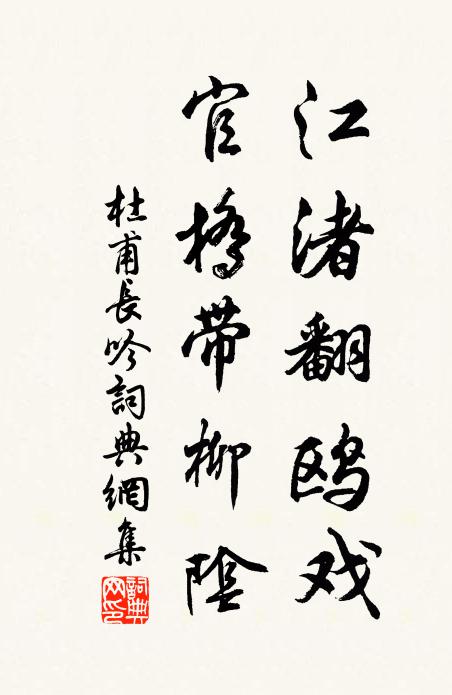 江渚翻鸥戏
官橋带柳陰
杜甫長吟詞典網集
詞典網印